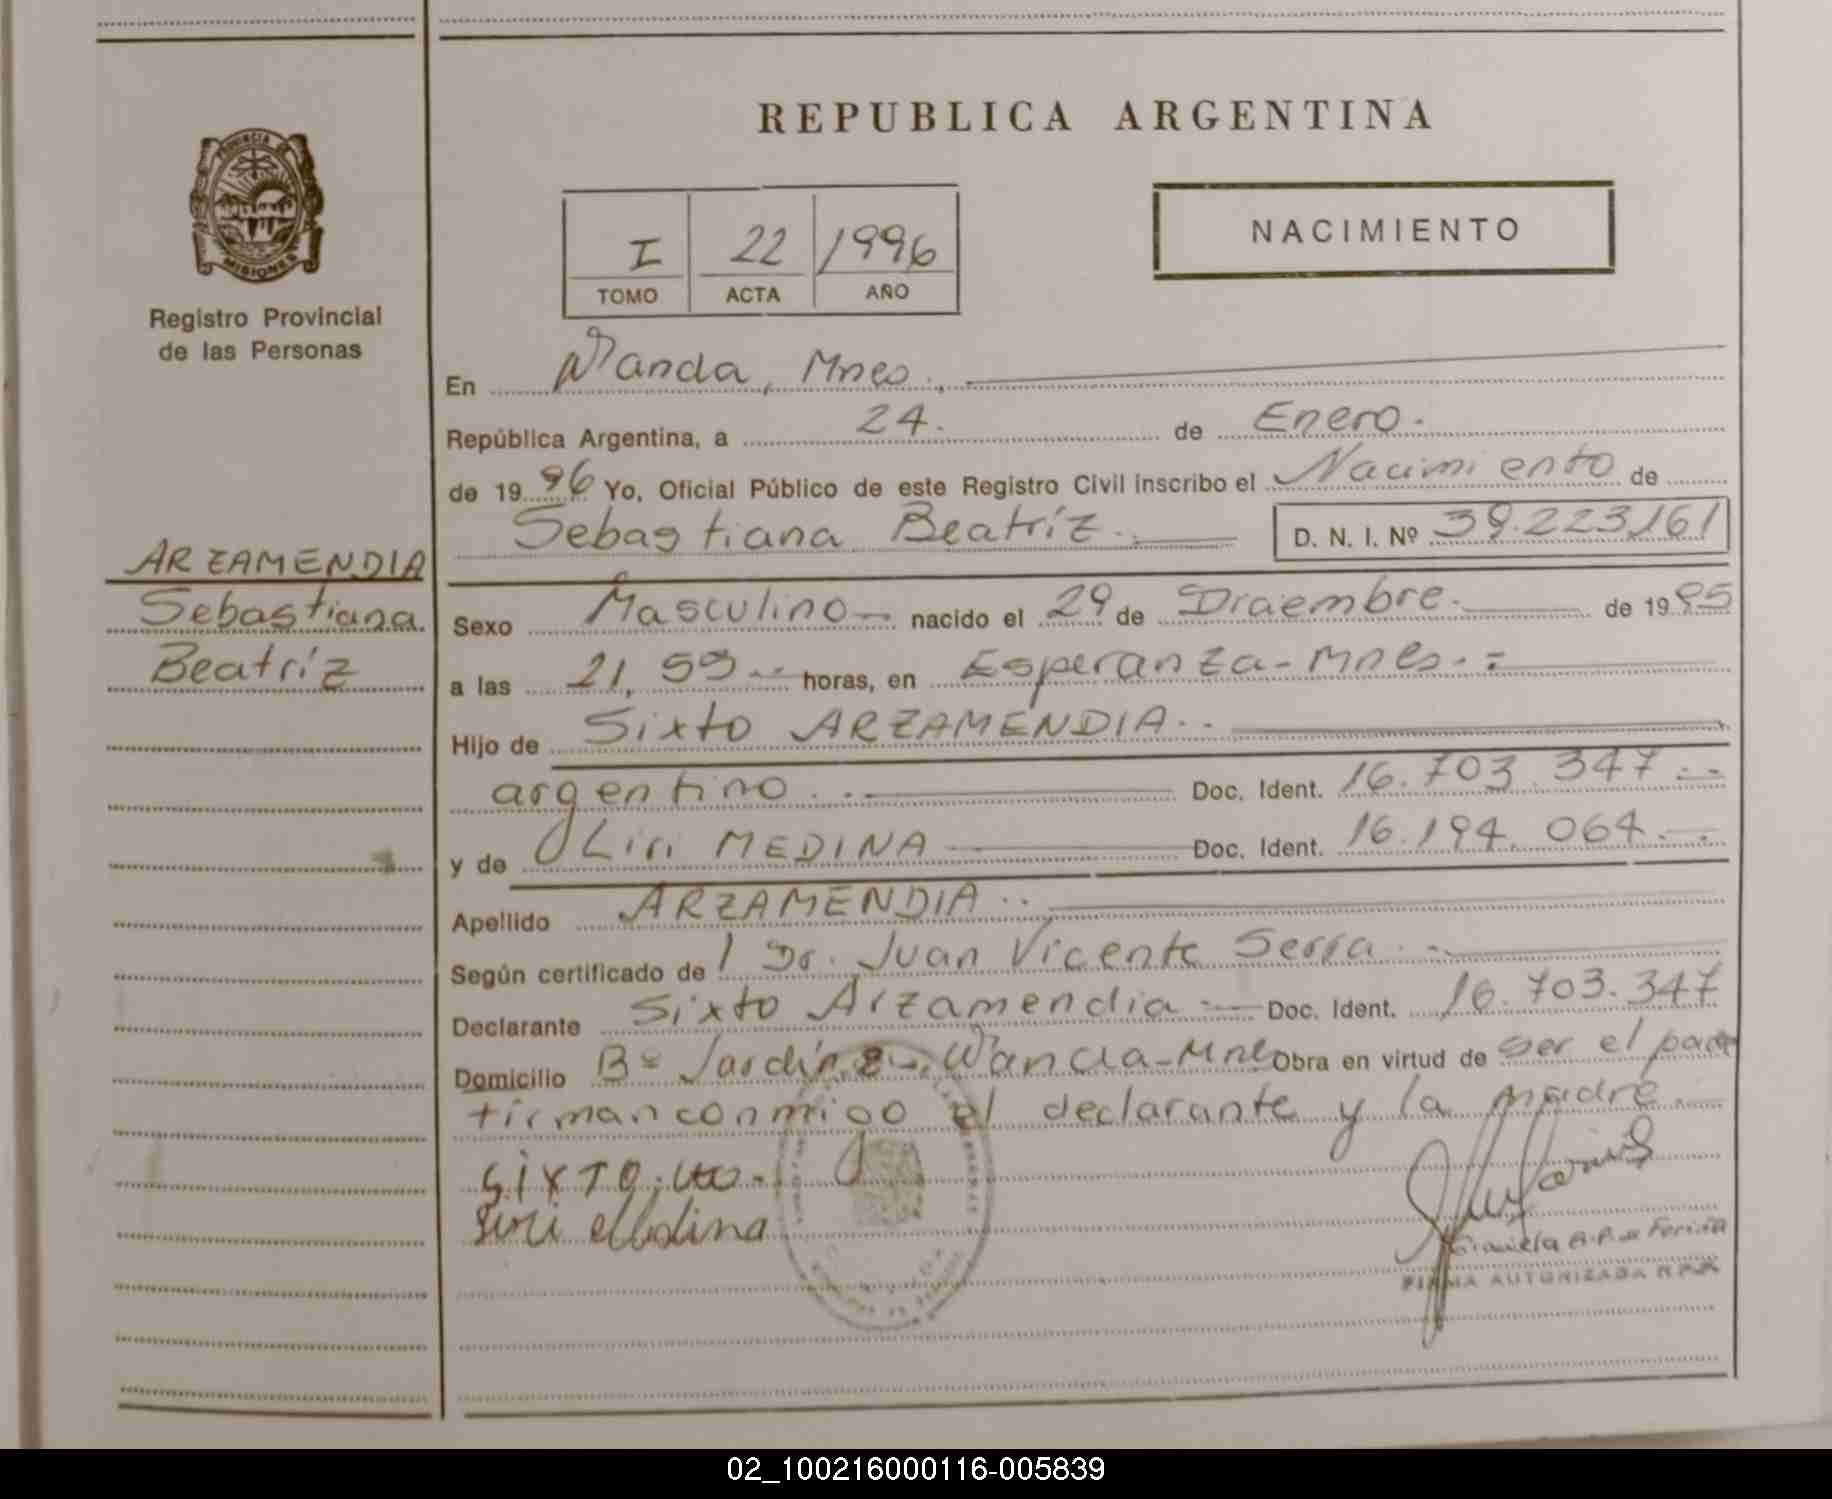 REPUBLICA ARGENTINA
NACIMIENTO
PROVINCIA DE
MISIONES
Registro Provincial
de las Personas
I 22 1996
TOMO ACTA AÑO
En Wanda, Mnes.
República Argentina, a 24. de Enero.
de 1996 Yo, Oficial Público de este Registro Civil inscribo el Nacimiento de
Sebastiana Beatríz. D. N. I. Nº 39.223.161
ARZAMENDIA
Sebastiana
Beatríz
Sexo Masculino nacido el 29 de Diciembre. de 1995
a las 21,55 horas, en Esperanza-Mnes.
Hijo de Sixto ARZAMENDIA
argentino Doc. Ident. 16.703.347
y de Liri MEDINA Doc. Ident. 16.194.064
Apellido ARZAMENDIA
Según certificado de Dr. Juan Vicente Serra
Declarante Sixto Arzamendia Doc. Ident. 16.703.347
Domicilio Bº Jardín Wanda-Mnes Obra en virtud de ser el padre
firman conmigo el declarante y la madre
SIXTO
Liri Medina
Graciela A.P. de Fariña
FIRMA AUTORIZADA R.P.P.
02_100216000116-005839